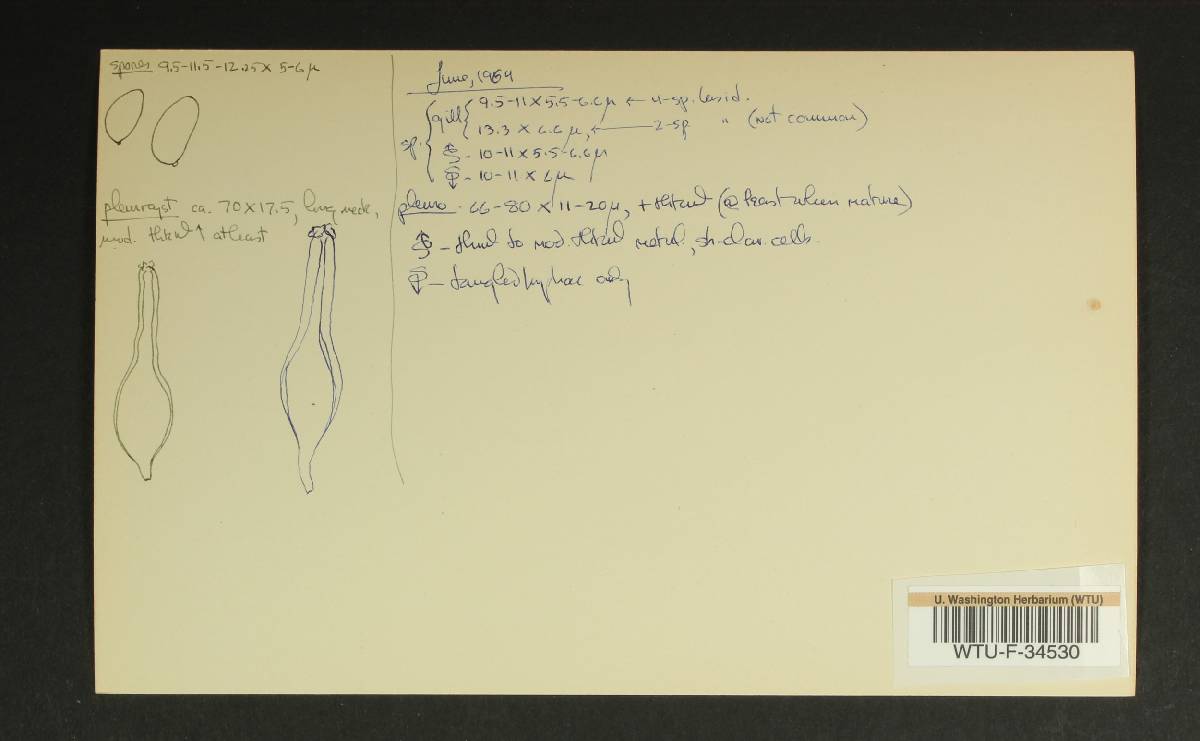 spores 9.5-11.5-12.25 x 5-6 µ
pleurocyst ca. 70 x 17.5, long neck,
mod. thkwl ↑ at least
June, 1964
sp. gill 9.5-11 x 5.5-6.6 µ ← 4-sp. basid.
13.3 x 6.6 µ, ← 2-sp " (not common)
- 10-11 x 5.5-6.6 µ
- 10-11 x 6 µ
pleuro - 66-80 x 11-20 µ, + thkwl (@ least when mature)
- thwl to mod. thkwl metul., sh-clav. cells.
- tangled hyphae only
U. Washington Herbarium (WTU)
WTU-F-34530